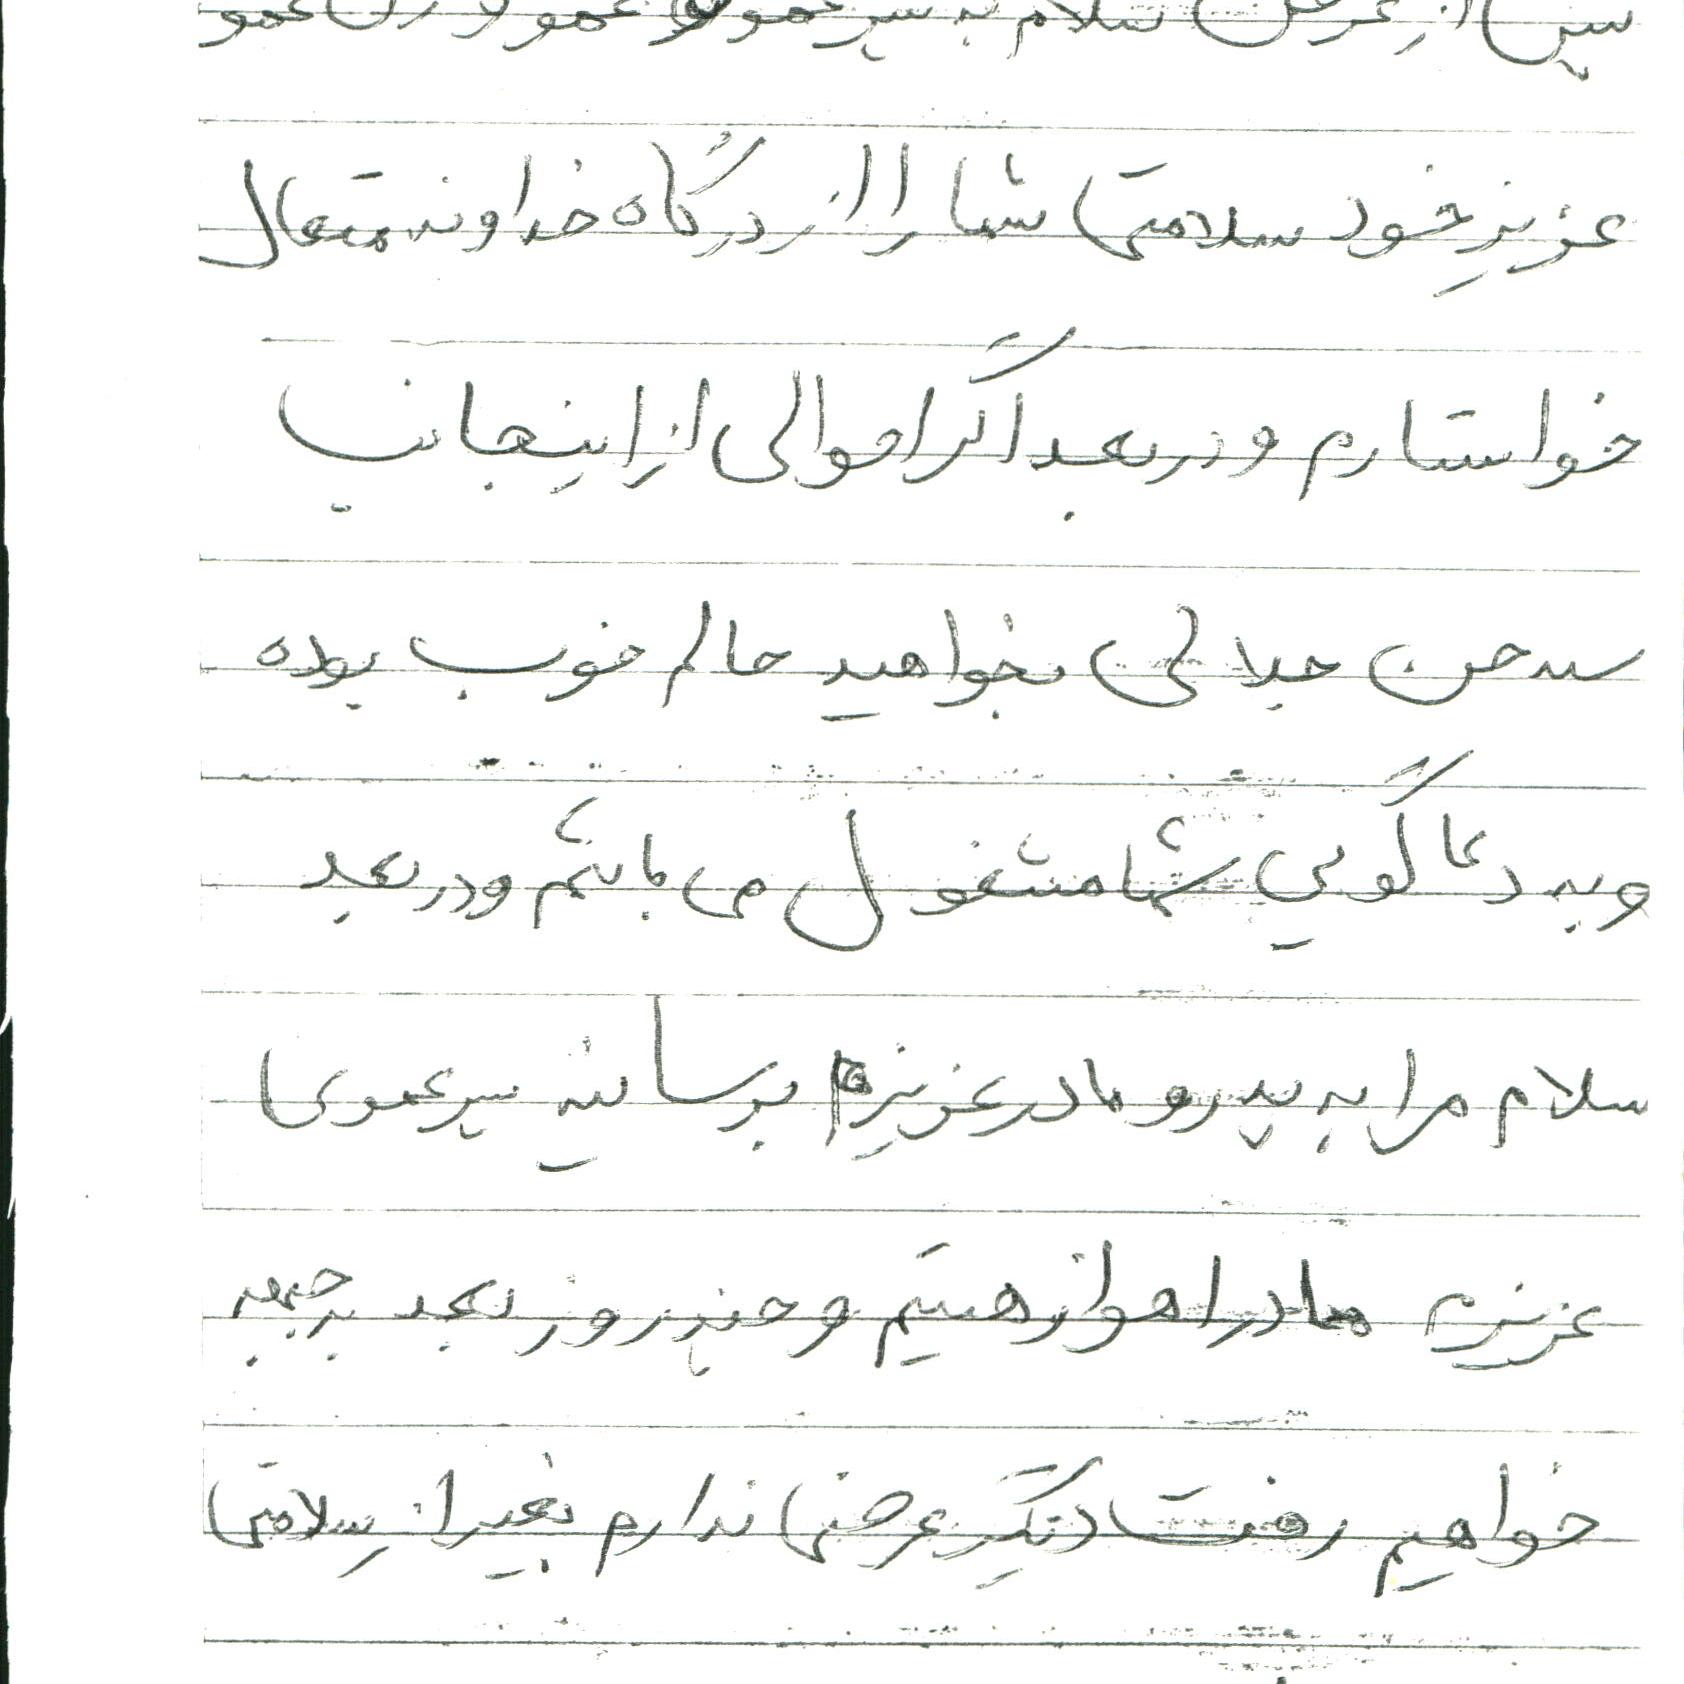 پس از عرض سلام به پسر عمو و عمو و زن عمو
عزیز خود سلامتی شما را از درگاه خداوند متعال
خواستارم و در بعد اگر احوالی از اینجانب
سید حسن جلالی بخواهید حالم خوب بوده
و به دعاگویی شما مشغول می باشم و در بعد
سلام مرا به پدر و مادر عزیزم برسانید پسر عموی
عزیزم ما در اهواز هستیم و چند روز بعد به جبهه
خواهیم رفت دیگر عرضی ندارم بغیر از سلامتی